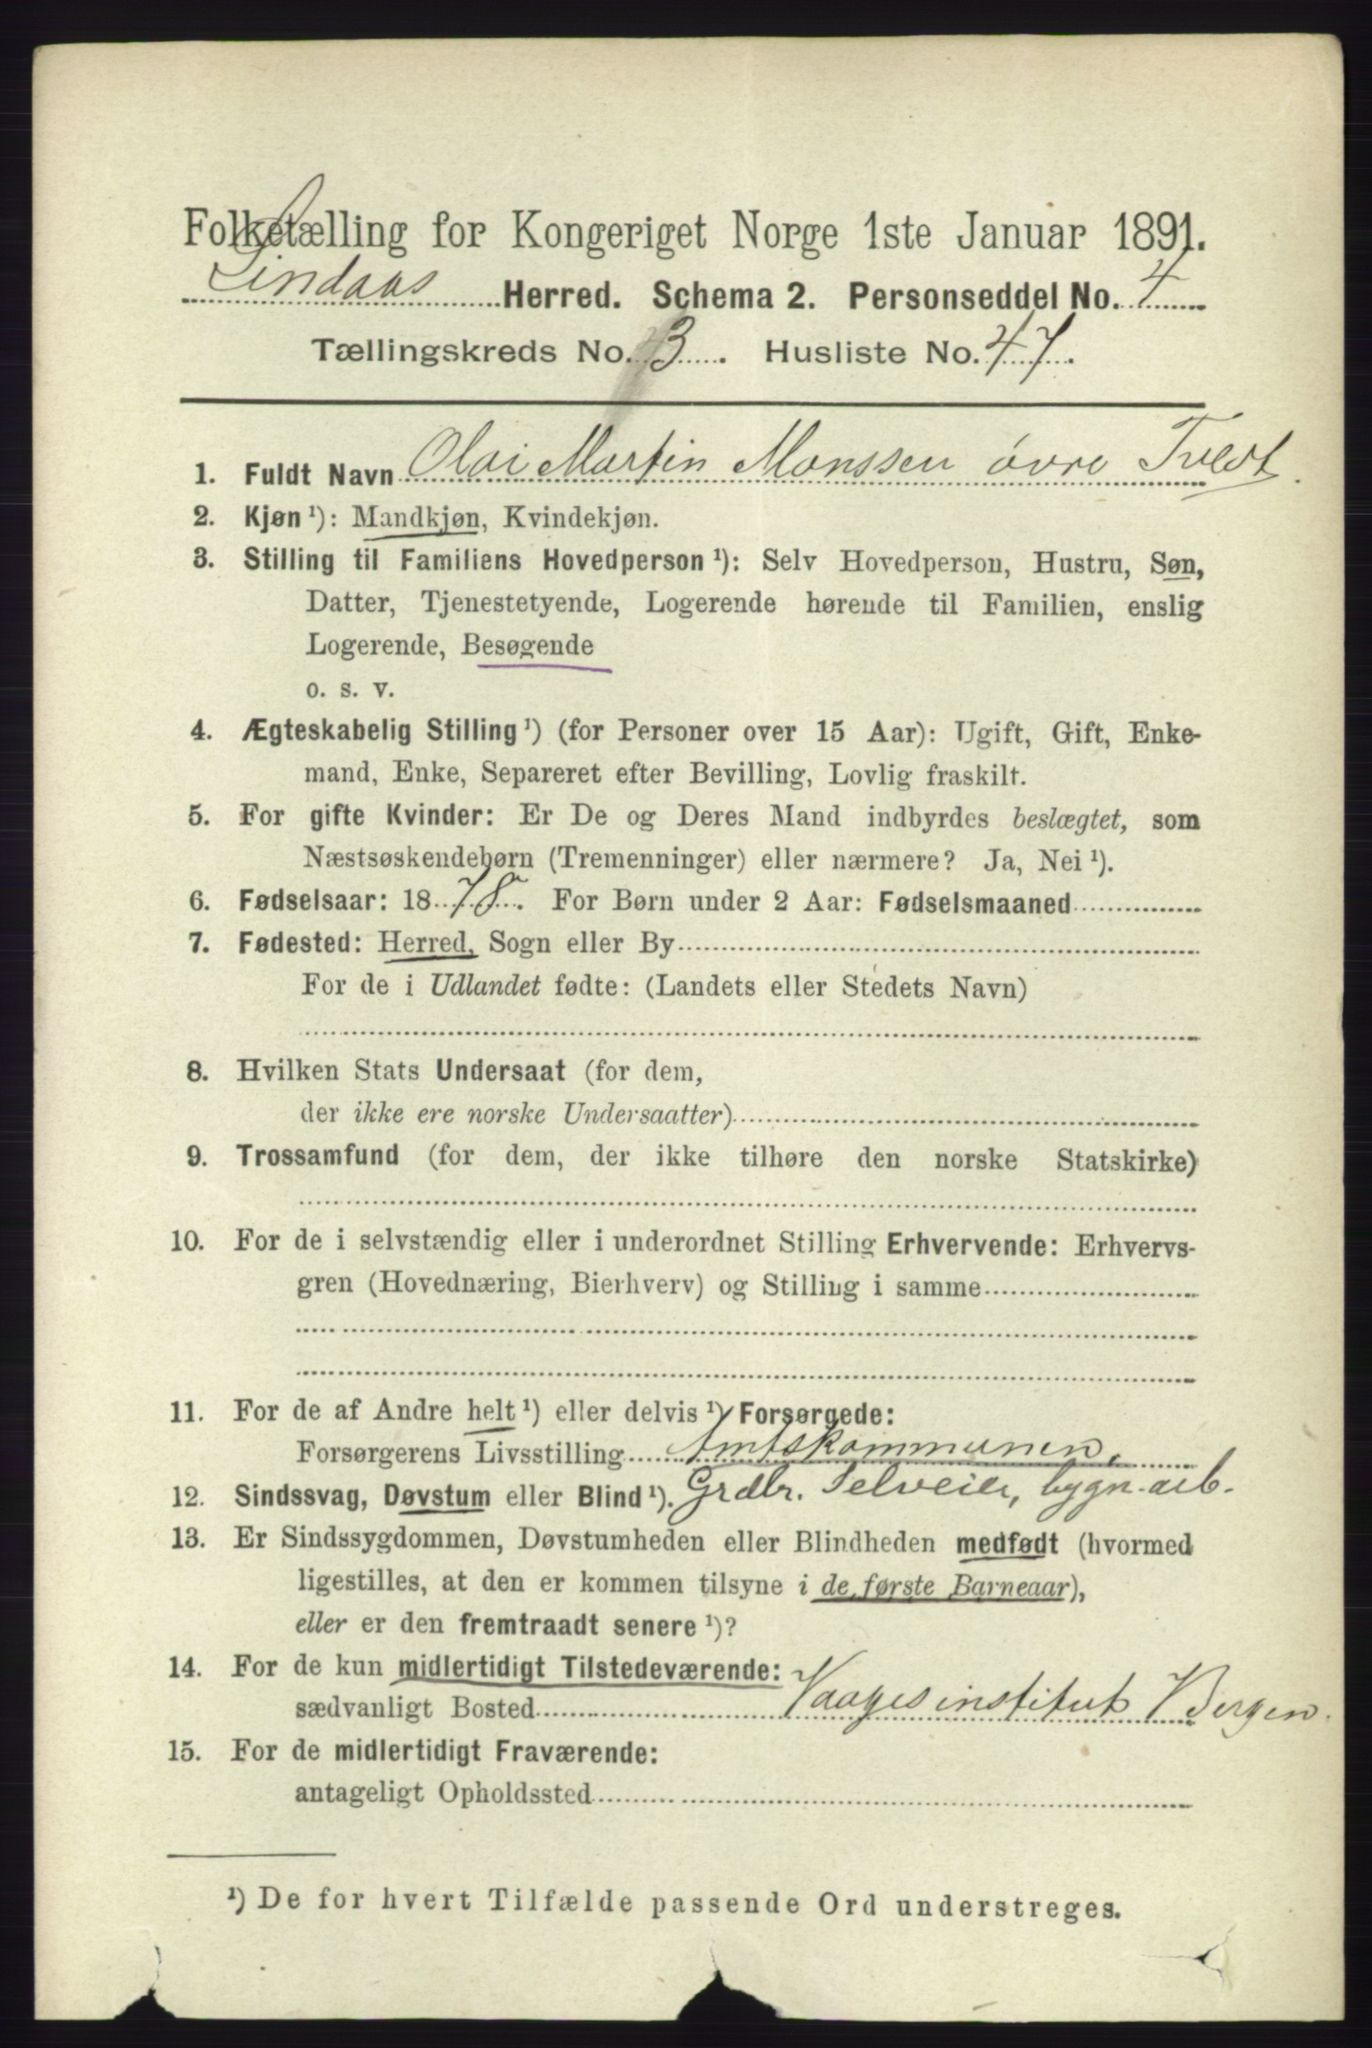 Folketælling for Kongeriget Norge 1ste Januar 1891.
Lindaas Herred. Schema 2. Personseddel No. 4
Tællingskreds No. 3. Husliste No. 47.
1. Fuldt Navn Olai Martin Monssen øvre Tvedt.
2. Kjøn ¹): Mandkjøn, Kvindekjøn.
3. Stilling til Familiens Hovedperson ¹): Selv Hovedperson, Hustru, Søn,
Datter, Tjenestetyende, Logerende hørende til Familien, enslig
Logerende, Besøgende
o. s. v.
4. Ægteskabelig Stilling ¹) (for Personer over 15 Aar): Ugift, Gift, Enke-
mand, Enke, Separeret efter Bevilling, Lovlig fraskilt.
5. For gifte Kvinder: Er De og Deres Mand indbyrdes beslægtet, som
Næstsøskendebørn (Tremenninger) eller nærmere? Ja, Nei ¹).
6. Fødselsaar: 1878. For Børn under 2 Aar: Fødselsmaaned
7. Fødested: Herred, Sogn eller By
For de i Udlandet fødte: (Landets eller Stedets Navn)
8. Hvilken Stats Undersaat (for dem,
der ikke ere norske Undersaatter)
9. Trossamfund (for dem, der ikke tilhøre den norske Statskirke)
10. For de i selvstændig eller i underordnet Stilling Erhvervende: Erhvervs-
gren (Hovednæring, Bierhverv) og Stilling i samme
11. For de af Andre helt ¹) eller delvis ¹) Forsørgede:
Forsørgerens Livsstilling Amtskommunen,
12. Sindssvag, Døvstum eller Blind ¹). Grdbr. Selveier, bygn. arb.
13. Er Sindssygdommen, Døvstumheden eller Blindheden medfødt (hvormed
ligestilles, at den er kommen tilsyne i de første Barneaar),
eller er den fremtraadt senere ¹)?
14. For de kun midlertidigt Tilstedeværende:
sædvanligt Bosted Vaages institut Bergen.
15. For de midlertidigt Fraværende:
antageligt Opholdssted
¹) De for hvert Tilfælde passende Ord understreges.